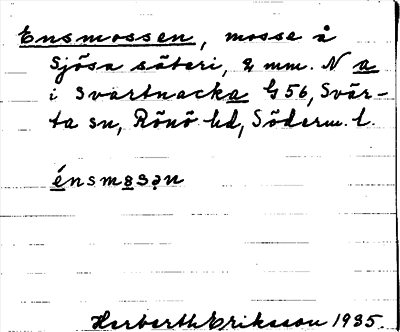 Ensmossen, mosse å
Sjösa säteri, 2 mm. N a
i Svartnacka G 56, Svär-
ta sn, Rönö hd, Söderm. l.
énsmɷsən
Herberth Eriksson 1935.